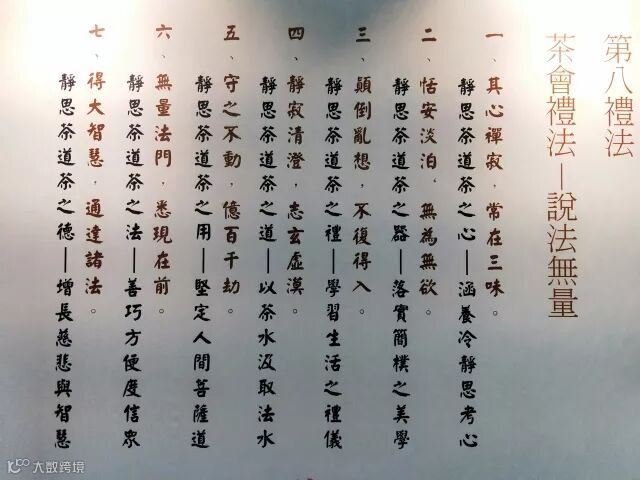 第八禮法
茶會禮法—說法無量
一、其心禪寂，常在三昧。
靜思茶道茶之心—涵養冷靜思考心
二、恬安淡泊，無為無欲。
靜思茶道茶之器—落實簡樸之美學
三、顛倒亂想，不復得入。
靜思茶道茶之禮—學習生活之禮儀
四、靜寂清澄，志玄虛漠。
靜思茶道茶之道—以茶水汲取法水
五、守之不動，億百千劫。
靜思茶道茶之用—堅定人間菩薩道
六、無量法門，悉現在前。
靜思茶道茶之法—善巧方便度信眾
七、得大智慧，通達諸法。
靜思茶道茶之德—增長慈悲與智慧
大数跨境